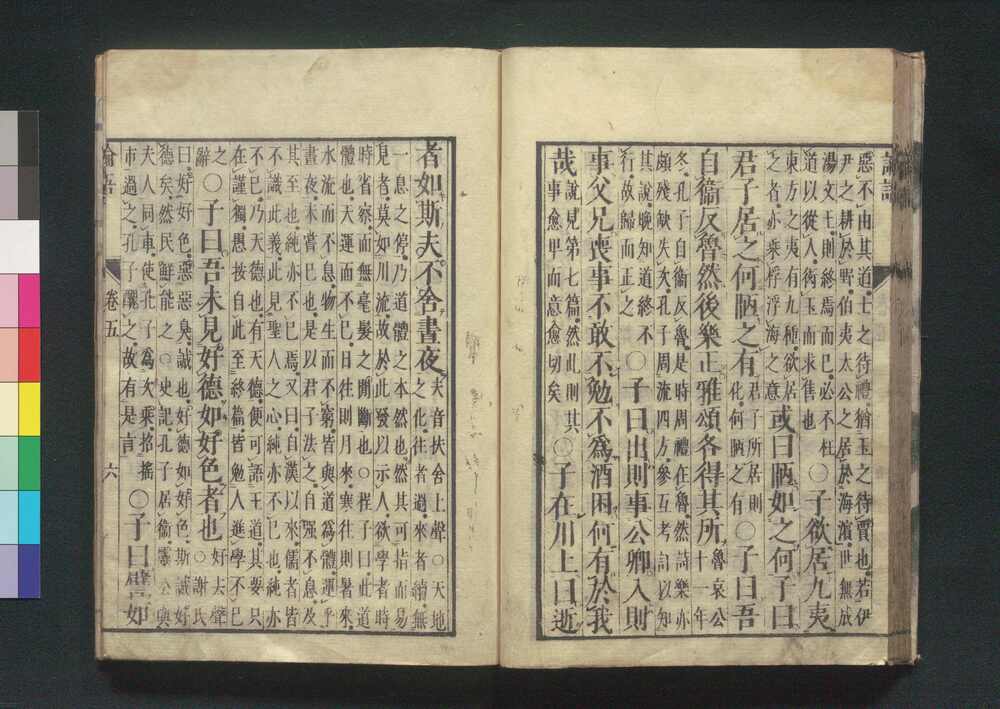 論語
惡不由其道士之待禮猶玉之待賈也若伊
尹之耕於野伯夷太公之居於海濱世無成
湯文王則終焉而已必不枉
道以從人衒玉而求售也
○子欲居九夷
東方之夷有九種欲居
之者亦乘桴浮海之意
或曰陋如之何子曰
君子居之何陋之有
君子所居則
化何陋之有
○子曰吾
自衞反魯然後樂正雅頌各得其所
魯哀公
十一年
冬孔子自衞反魯是時周禮在魯然詩樂亦
頗殘缺失次孔子周流四方參互考訂以知
其說晚知道終不
行故歸而正之
○子曰出則事公卿入則
事父兄喪事不敢不勉不爲酒困何有於我
哉
說見第七篇然此則其
事愈卑而意愈切矣
○子在川上曰逝
者如斯夫不舍晝夜
夫音扶舍上聲○天地
之化往者過來者續無
一息之停乃道體之本然也然其可指而易
見者莫如川流故於此發以示人欲學者時
時省察而無毫髮之間斷也○程子曰此道
體也天運而不已日往則月來寒往則暑來
水流而不息物生而不窮皆與道爲體運乎
晝夜未嘗已也是以君子法之自强不息及
其至也純亦不已焉又曰自漢以來儒者皆
不識此義此見聖人之心純亦不已也純亦
不已乃天德也有天德便可語王道其要只
在謹獨愚按自此至終篇皆勉人進學不已
之
辭
○子曰吾未見好德如好色者也
好去聲
○謝氏
曰好好色惡惡臭誠也好德如好色斯誠好
德矣然民鮮能之○史記孔子居衞靈公與
夫人同車使孔子爲次乘招搖
市過之孔子醜之故有是言
○子曰譬如
論語 卷五 六